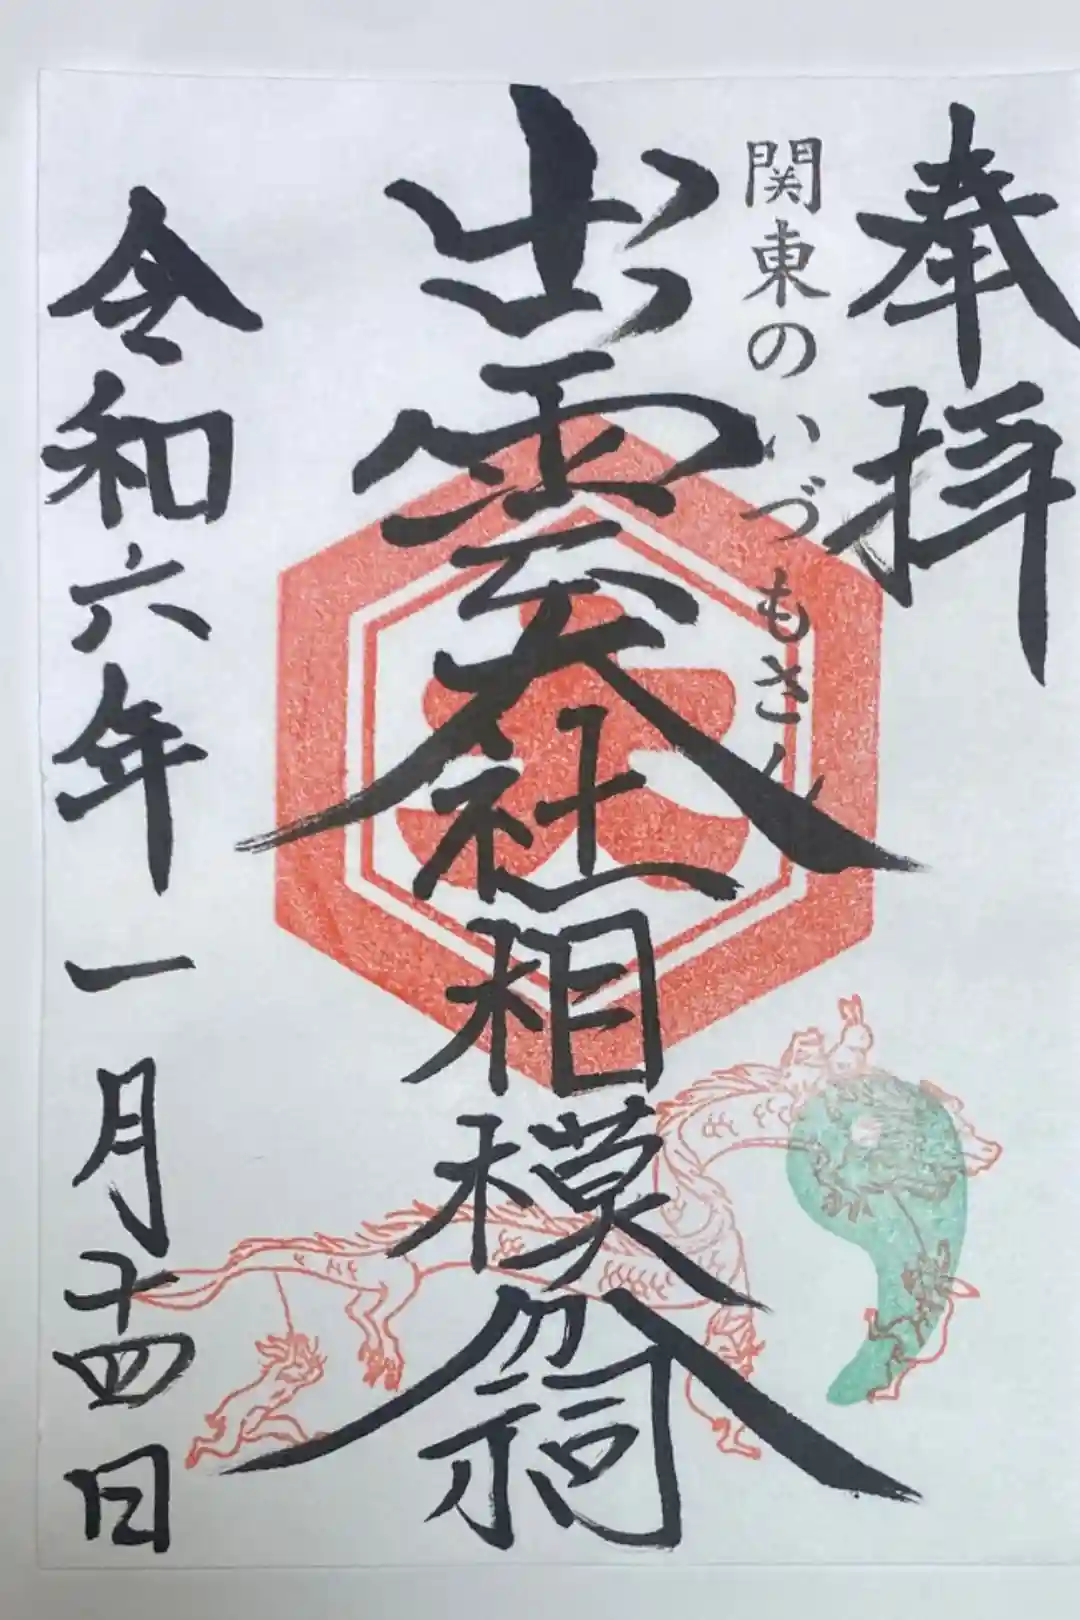 奉拝
関東のいづもさん
出雲大社相模分祠
大
令和六年一月十四日